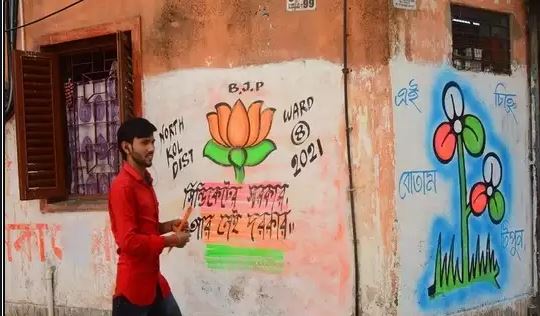 B.J.P
NORTH
KOL
DIST
WARD
8
2021
সিন্ডিকেটের সরকার,
আর নেই দরকার..
এই চিহ্নে
বোতাম টিপুন